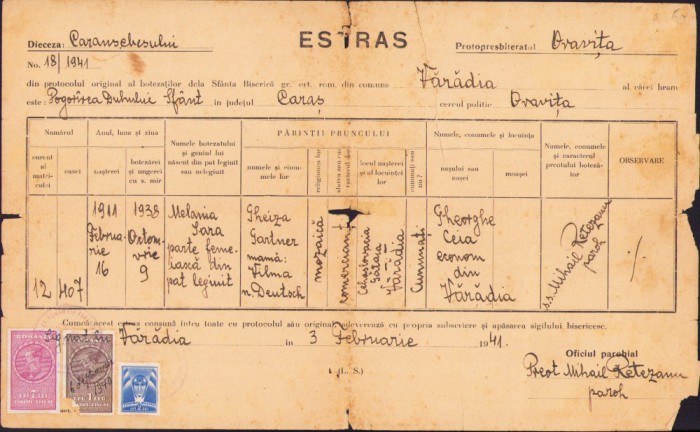 Dieceza: Caransebeşului
ESTRAS
Protopresbiteratul Oraviţa
No. 18/1941
din protocolul original al botezaţilor dela Sfânta Biserică gr. ort. rom. din comuna Vărădia al cărei hram
este: Pogorîrea Duhului Sfânt în judeţul Caraş cercul politic Oraviţa
Numărul
curent al matriculei
casei
Anul, luna şi ziua
naşterei
botezărei şi ungerei cu s. mir
Numele botezatului şi genul lui născut din pat legiuit sau nelegiuit
PĂRINŢII PRUNCULUI
numele şi conumele lor
religiunea lor
locul naşterei şi al locuinţei lor
cununaţi sau nu?
Numele, conumele şi locuinţa
naşului sau naşei
moaşei
Numele, conumele şi caracterul preotului botezător
OBSERVARE
12
407
1911
Februarie
16
1938
Octomvrie
9
Melania
Sara
parte femeiască din
pat legiuit
Gheiza
Gartner
mama:
Vilma
n. Deutsch
mozaică
comerciant
Cehoslovacia
Gataia
Vărădia
Cununaţi
Gheorghe
Ceia
econom
din
Vărădia
ss. Mihail Retezanu
paroh
Cumcă acest estras consună întru toate cu protocolul său original adeverează cu propria subscriere şi apăsarea sigilului bisericesc.
Vărădia în 3 Februarie 1941.
Oficiul parohial
(L. S.)
Preot Mihail Retezanu
paroh